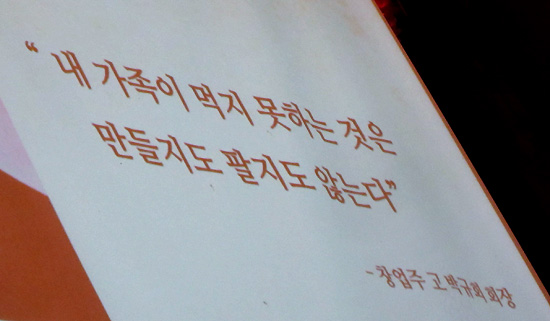 “ 내 가족이 먹지 못하는 것은
만들지도 팔지도 않는다”
- 창업주 고 박규회 회장